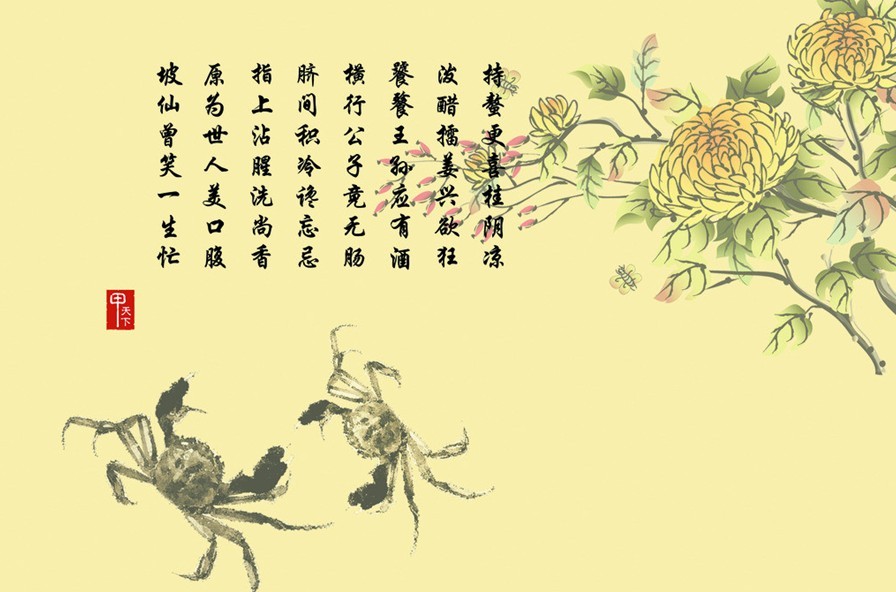 持螯更喜桂阴凉
泼醋擂姜兴欲狂
饕餮王孙应有酒
横行公子竟无肠
脐间积冷谗忘忌
指上沾腥洗尚香
原为世人美口腹
坡仙曾笑一生忙
甲天下